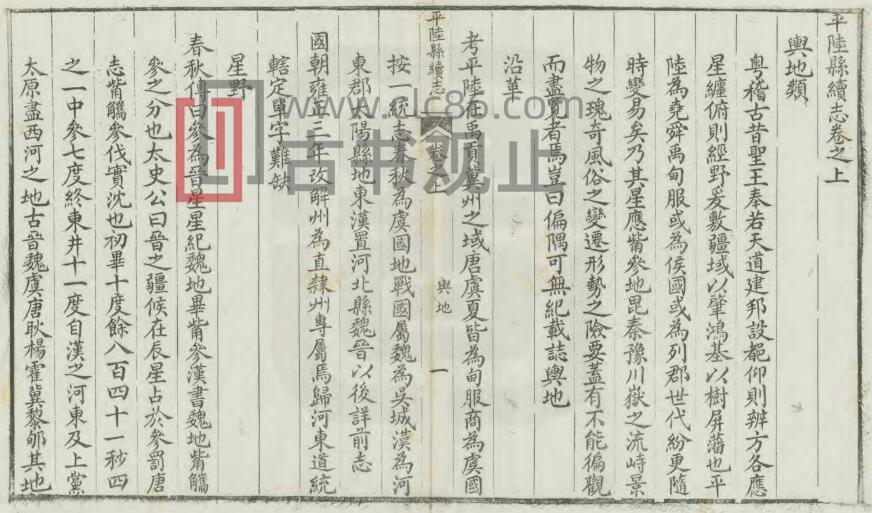 平陸縣續志卷之上
輿地類
粵稽古昔聖王奉若天道建邦設都仰則辨方各應
星纏俯則經野爰敷疆域以肇鴻基以樹屏藩也平
陸為堯舜禹甸服或為侯國或為列郡世代紛更隨
時變易矣乃其星應觜參地毘秦豫川嶽之流峙景
物之瑰奇風俗之變遷形勢之險要蓋有不能徧觀
而盡覽者焉豈曰偏隅可無紀載誌輿地
沿革
考平陸在禹貢冀州之域唐虞夏皆為甸服商為虞國
平陸縣續志
卷之上
輿地
一
按一統志春秋為虞國地戰國屬魏為吳城漢為河
東郡太陽縣地東漢置河北縣魏晉以後詳前志
國朝雍正二年改解州為直隸州專屬焉歸河東道統
轄定單字難缺
星野
春秋傳曰參為晉星星紀魏地畢觜參漢書魏地觜觿
參之分也太史公曰晉之疆候在辰星占於參罰唐
志觜觿參伐實沈也初畢十度餘八百四十一秒四
之一中參七度終東井十一度自漢之河東及上黨
太原盡西河之地古晉魏虞唐耿楊霍冀黎郇其地
www.dc8s.com
古书观止